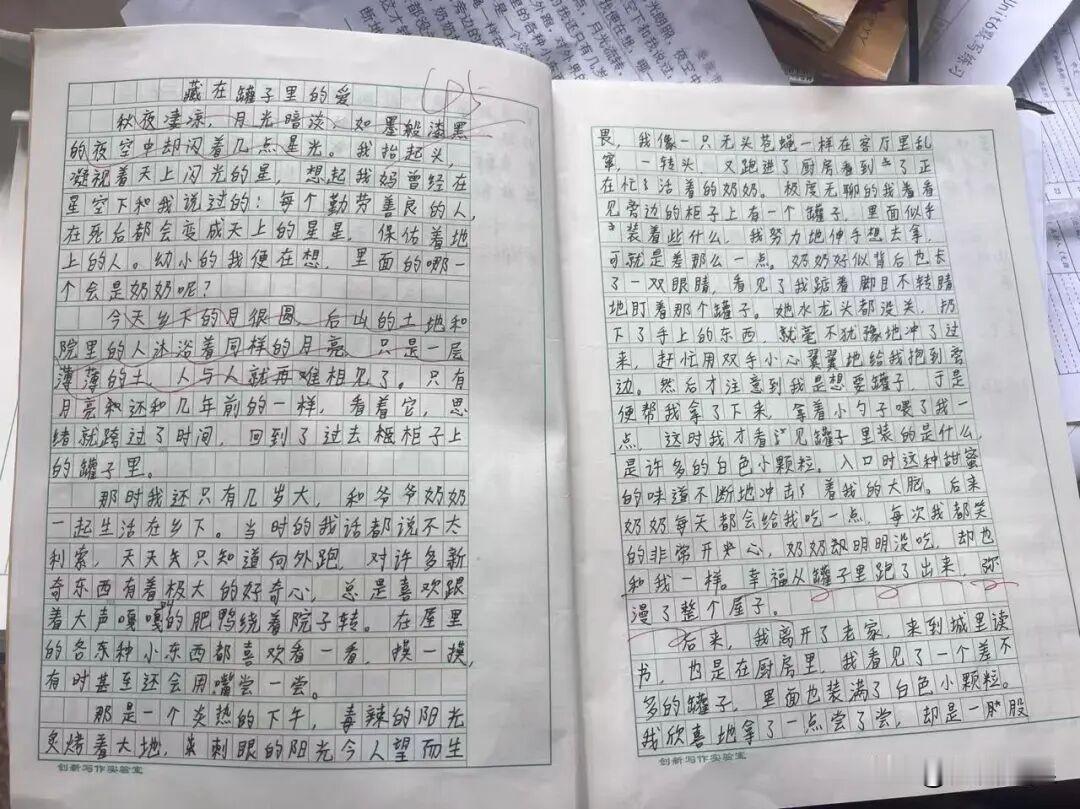 藏在罐子里的爱
秋夜凄凉,月光暗淡,如墨般漆黑
的夜空中却闪着几点星光。我抬起头,
凝视着天上闪光的星,想起我妈曾经在
星空下和我说过的:每个勤劳善良的人,
在死后都会变成天上的星星,保佑着地
上的人。幼小的我便在想,里面的哪一
个会是奶奶呢?
今天乡下的月很圆,后山的土地和
院里的人沐浴着同样的月亮,只是一层
薄薄的土,人与人就再难相见了。只有
月亮还和几年前的一样,看着它,思
绪就跨过了时间,回到了过去柜子上
的罐子里。
那时我还只有几岁大,和爷爷奶奶
一起生活在乡下。当时的我话都说不大
利索,天天只知道向外跑,对许多新
奇东西有着极大的好奇心,总是喜欢跟
着大声嘎嘎的肥鸭绕着院子转。在屋里
的各种小东西都喜欢看一看,摸一摸,
有时甚至还会用嘴尝一尝。
那是一个炎热的下午,毒辣的阳光
炙烤着大地,刺眼的阳光令人望而生
创新写作实验室
畏,我像一只无头苍蝇一样在客厅里乱
窜,一转头,又跑进了厨房看到了正
在忙活着的奶奶。极度无聊的我看
见旁边的柜子上有一个罐子,里面似乎
装着些什么,我努力地伸手想去拿,
可就是差那么一点。奶奶好似背后也长
了一双眼睛,看见了我踮着脚目不转睛
地盯着那个罐子。她水龙头都没关,扔
下了手上的东西,就毫不犹豫地冲了过
来,赶忙用双手小心翼翼地给我抱到旁
边。然后才注意到我是想要罐子,于是
便帮我拿了下来,拿着小勺子喂了我一
点,这时我才看见罐子里装的是什么,
是许多的白色小颗粒。入口时这种甜蜜
的味道不断地冲击着我的大脑。后来
奶奶每天都会给我吃一点,每次我都笑
的非常开心,奶奶明明没吃,却也
和我一样。幸福从罐子里跑了出来,弥
漫了整个屋子。
后来,我离开了老家,来到城里读
书,也是在厨房里,我看见了一个差不
多的罐子,里面也装满了白色小颗粒。
我欣喜地拿了一点尝了尝,却是一股
创新写作实验室